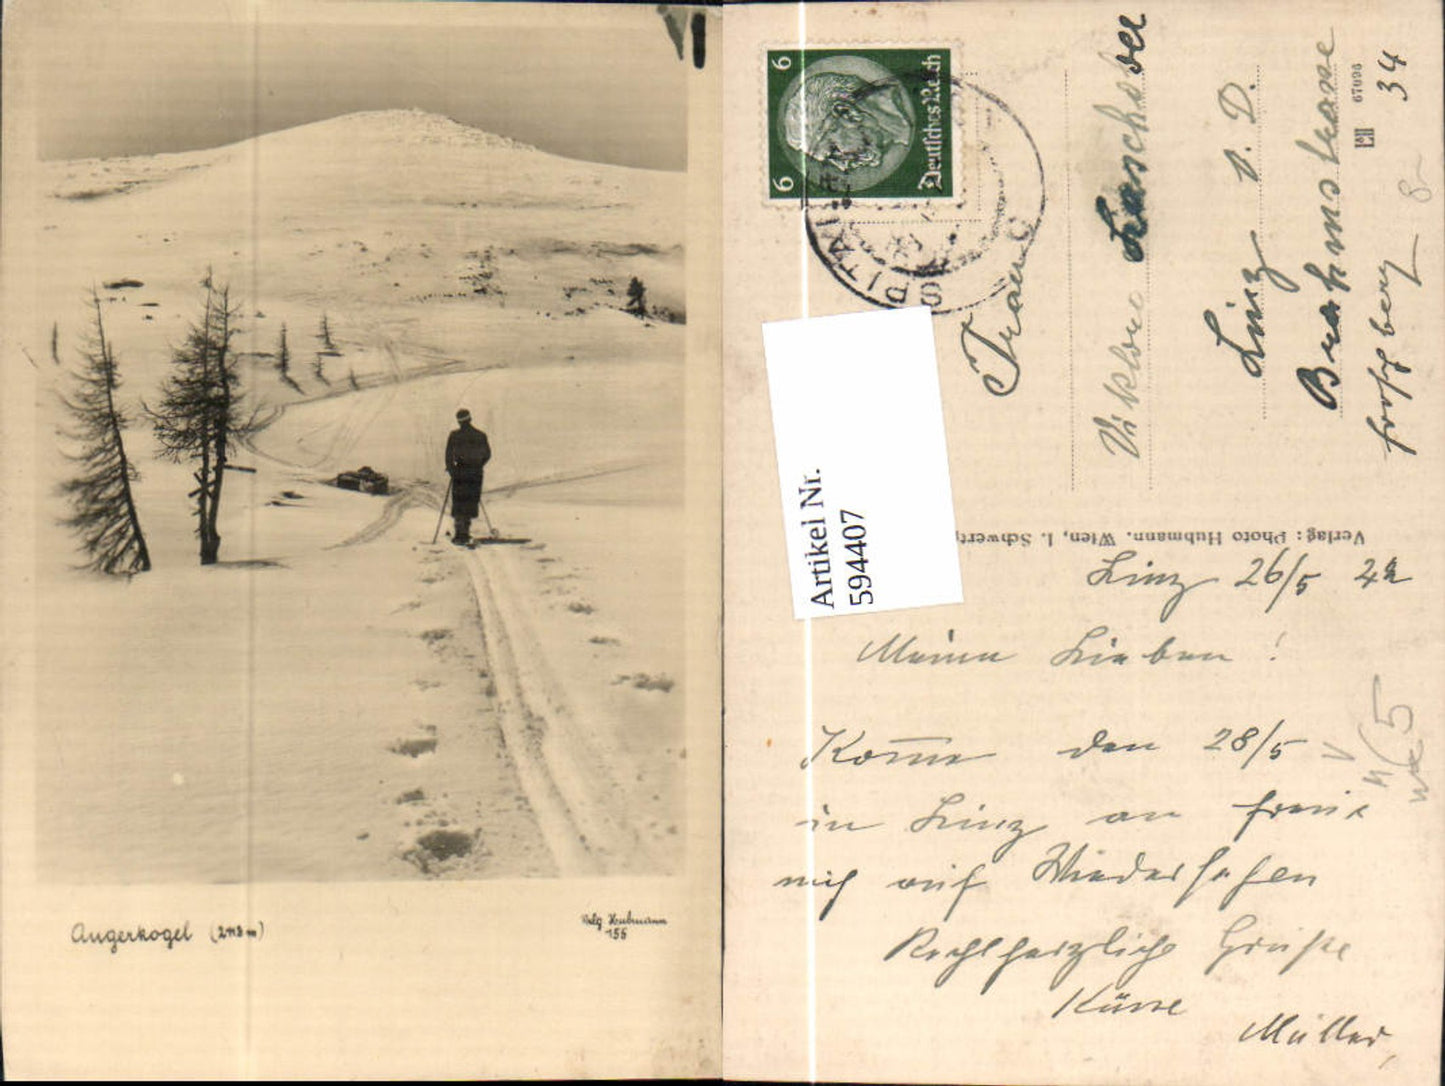 Angerkogel (2113 m)
Velg Hubmann
156
6
6
Deutsches Reich
SPITAL
Artikel Nr.
594407
Frau
Viktore
Linz a. D.
Brahmsstrasse
34
67096
Verlag: Photo Hubmann, Wien, I. Schwert
Linz 26/5 42
Meine Lieben!
Komme den 28/5
in Linz an freue
mich auf Wiedersehen
Rechtherzliche Grüße
Küsse
5